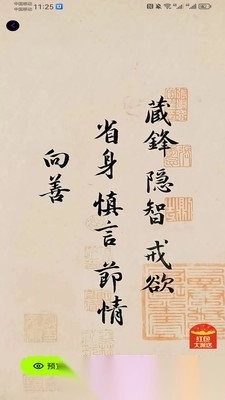 中国移动
中国移动 11:25
藏鋒隐智戒欲
省身慎言節情
向善
红包
大派送